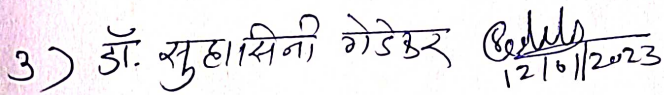 3) डॉ. सुहासिनी गेडेकर
12/01/2023